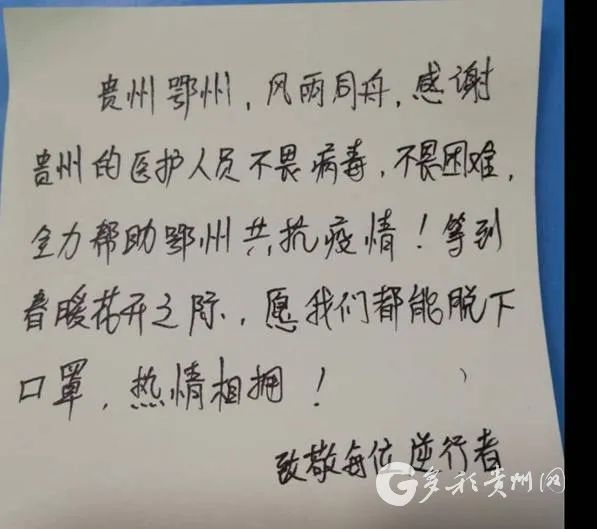 贵州鄂州，风雨同舟，感谢
贵州的医护人员不畏病毒，不畏困难，
全力帮助鄂州共抗疫情！等到
春暖花开之际，愿我们都能脱下
口罩，热情相拥！
致敬每位逆行者
多彩贵州网